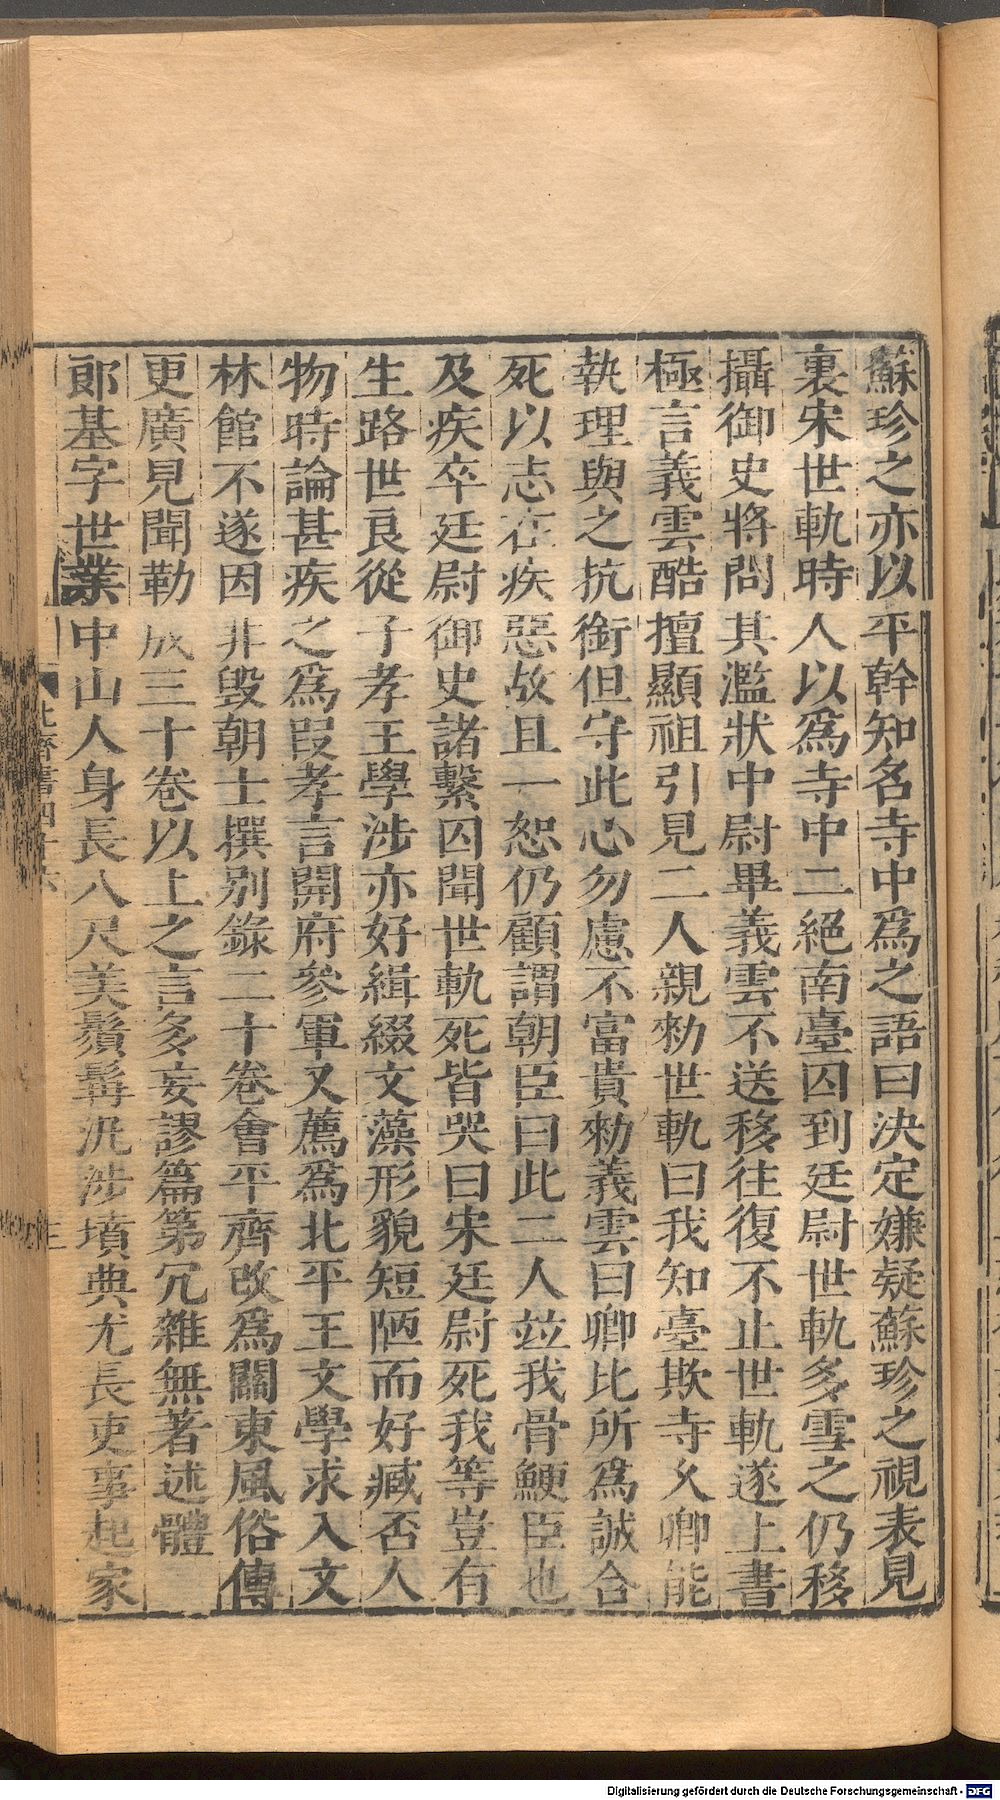 蘇珍之亦以平幹知名寺中爲之語曰決定嫌疑蘇珍之視表見
裏宋世軌時人以爲寺中二絕南臺囚到廷尉世軌多雪之仍移
攝御史將問其濫狀中尉畢義雲不送移往復不止世軌遂上書
極言義雲酷擅顯祖引見二人親勑世軌曰我知臺欺寺乆卿能
執理與之抗衘但守此心勿慮不富貴勑義雲曰卿比所爲誠合
死以志在疾惡故且一恕仍顧謂朝臣曰此二人竝我骨鯁臣也
及疾卒廷尉御史諸繫囚聞世軌死皆哭曰宋廷尉死我等豈有
生路世良從子孝王學涉亦好緝綴文藻形貌短陋而好臧否人
物時論甚疾之爲叚孝言開府參軍又薦爲北平王文學求入文
林館不遂因非毀朝士撰別錄二十卷會平齊改爲關東風俗傳
更廣見聞勒成三十卷以上之言多妄謬篇第冗雜無著述體
郎基字世業中山人身長八尺美鬚髯汎涉墳典尤長吏事起家
北齊書四十六
Digitalisierung gefördert durch die Deutsche Forschungsgemeinschaft - DFG